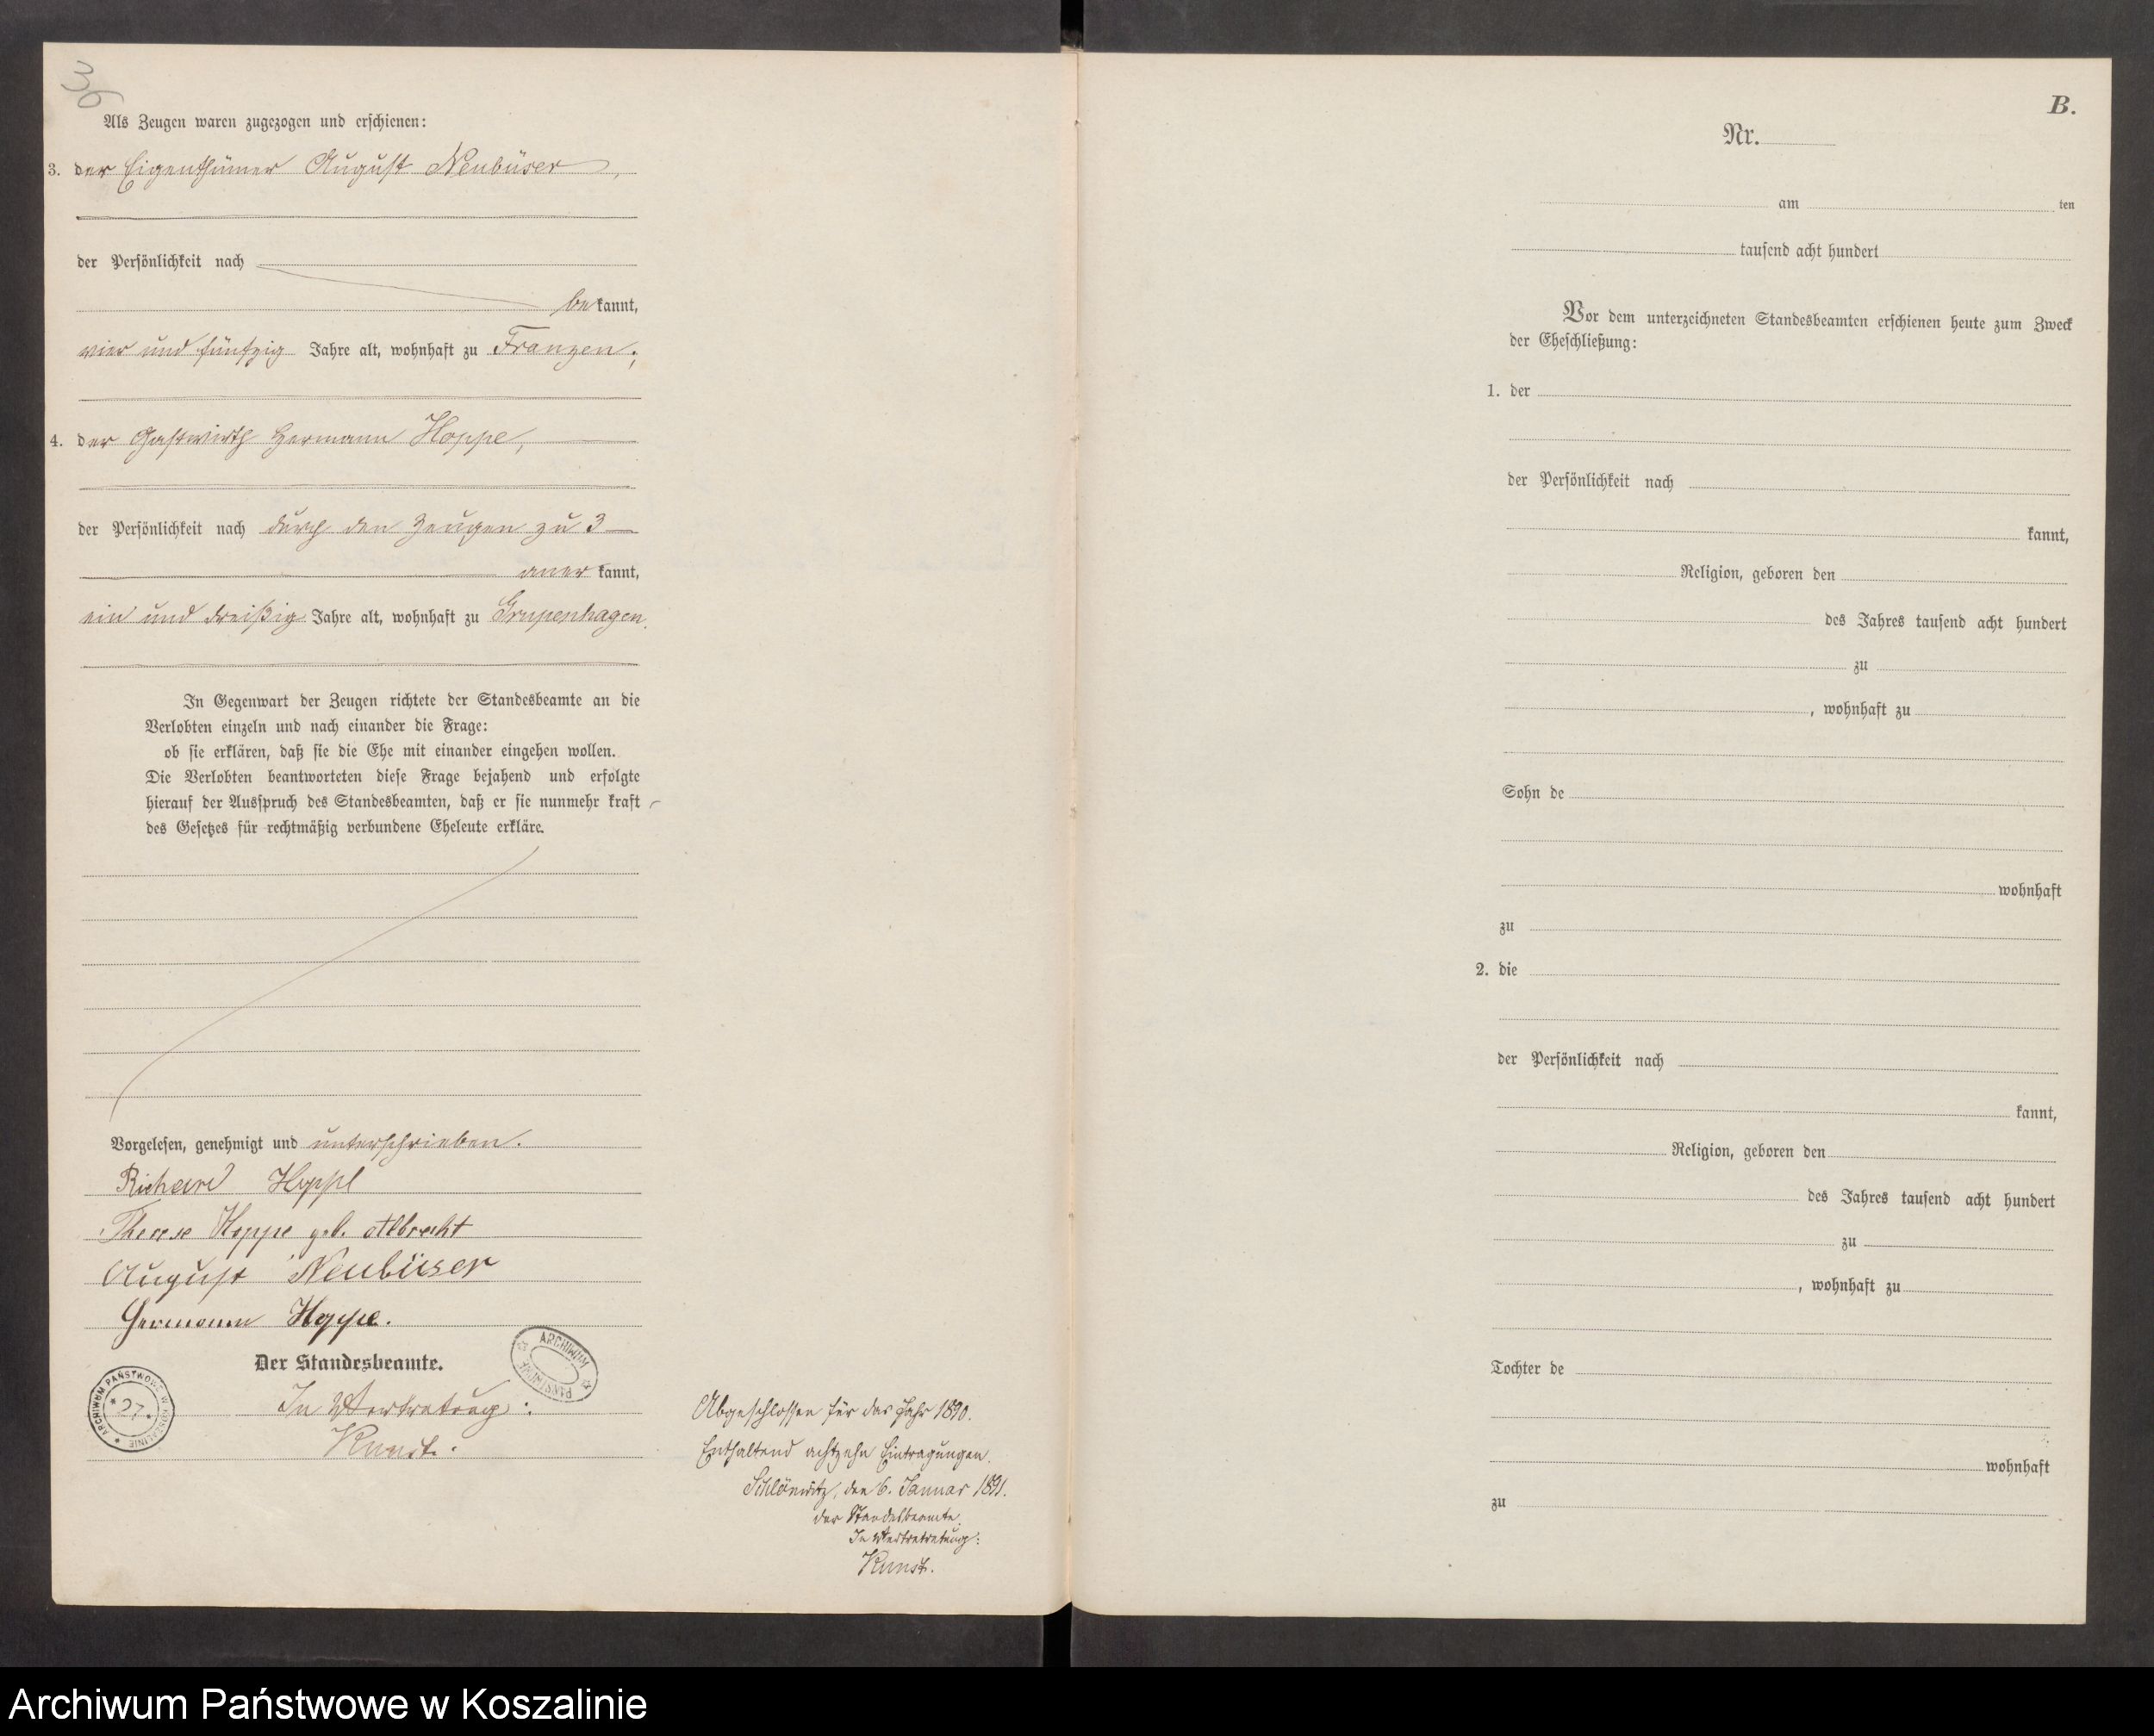 36
Als Zeugen waren zugezogen und erschienen:
3. der Eigenthümer August Neubüser,
der Persönlichkeit nach
be kannt,
vier und fünfzig Jahre alt, wohnhaft zu Franzen;
4. der Gastwirth Hermann Hoppe,
der Persönlichkeit nach durch den Zeugen zu 3
aner kannt,
ein und dreißig Jahre alt, wohnhaft zu Grupenhagen.
In Gegenwart der Zeugen richtete der Standesbeamte an die
Verlobten einzeln und nach einander die Frage:
ob sie erklären, daß sie die Ehe mit einander eingehen wollen.
Die Verlobten beantworteten diese Frage bejahend und erfolgte
hierauf der Ausspruch des Standesbeamten, daß er sie nunmehr kraft
des Gesetzes für rechtmäßig verbundene Eheleute erkläre.
Vorgelesen, genehmigt und unterschrieben.
Richard Hoppe
Therese Hoppe geb. Albrecht
August Neubüser
Hermann Hoppe.
Der Standesbeamte.
In Vertretung:
Kunst.
ARCHIWUM PAŃSTWOWE W KOSZALINIE
27
ARCHIWUM PAŃSTWOWE
Abgeschlossen für das Jahr 1890.
Enthaltend achtzehn Eintragungen.
Schlönwitz, den 6. Januar 1891.
der Standesbeamte.
In Vertretung:
Kunst.
B.
Nr.
am ten
tausend acht hundert
Vor dem unterzeichneten Standesbeamten erschienen heute zum Zweck
der Eheschließung:
1. der
der Persönlichkeit nach
kannt,
Religion, geboren den
des Jahres tausend acht hundert
zu
, wohnhaft zu
Sohn de
wohnhaft
zu
2. die
der Persönlichkeit nach
kannt,
Religion, geboren den
des Jahres tausend acht hundert
zu
, wohnhaft zu
Tochter de
wohnhaft
zu
Archiwum Państwowe w Koszalinie